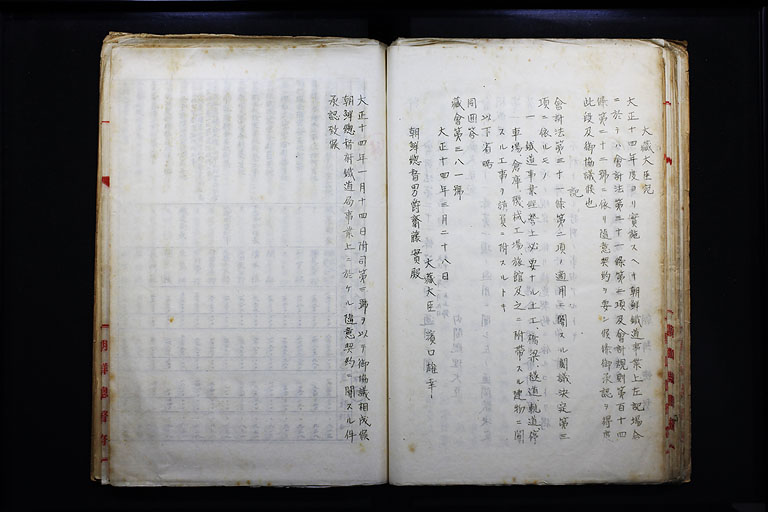 大藏大臣宛
大正十四年度ヨリ實施スヘキ朝鮮鐵道事業上左記場合
ニ於テハ會計法第三十一條第二項及會計規則第百十四
條第二十二號ニ依リ隨意契約ヲ要シ候條御承認ヲ得度
此段及御協議候也
記
會計法第三十一條第二項ノ適用ニ關スル閣議決定第三
項ニ依ルモノ
一、鐵道事業經營上必要ナル土工、橋梁、隧道、軌道、停
車場、倉庫、機械工場、旅館及之ニ附帶スル建物ニ關
スル工事ヲ請負ニ附スルトキ
以下省略
同回答
藏會第三八一號
大正十四年三月二十八日
大藏大臣 濱口雄幸
朝鮮總督男爵齋藤實殿
大正十四年一月十四日附司第三號ヲ以テ御協議相成候
朝鮮總督府鐵道局事業上ニ於ケル隨意契約ニ關スル件
承認致候